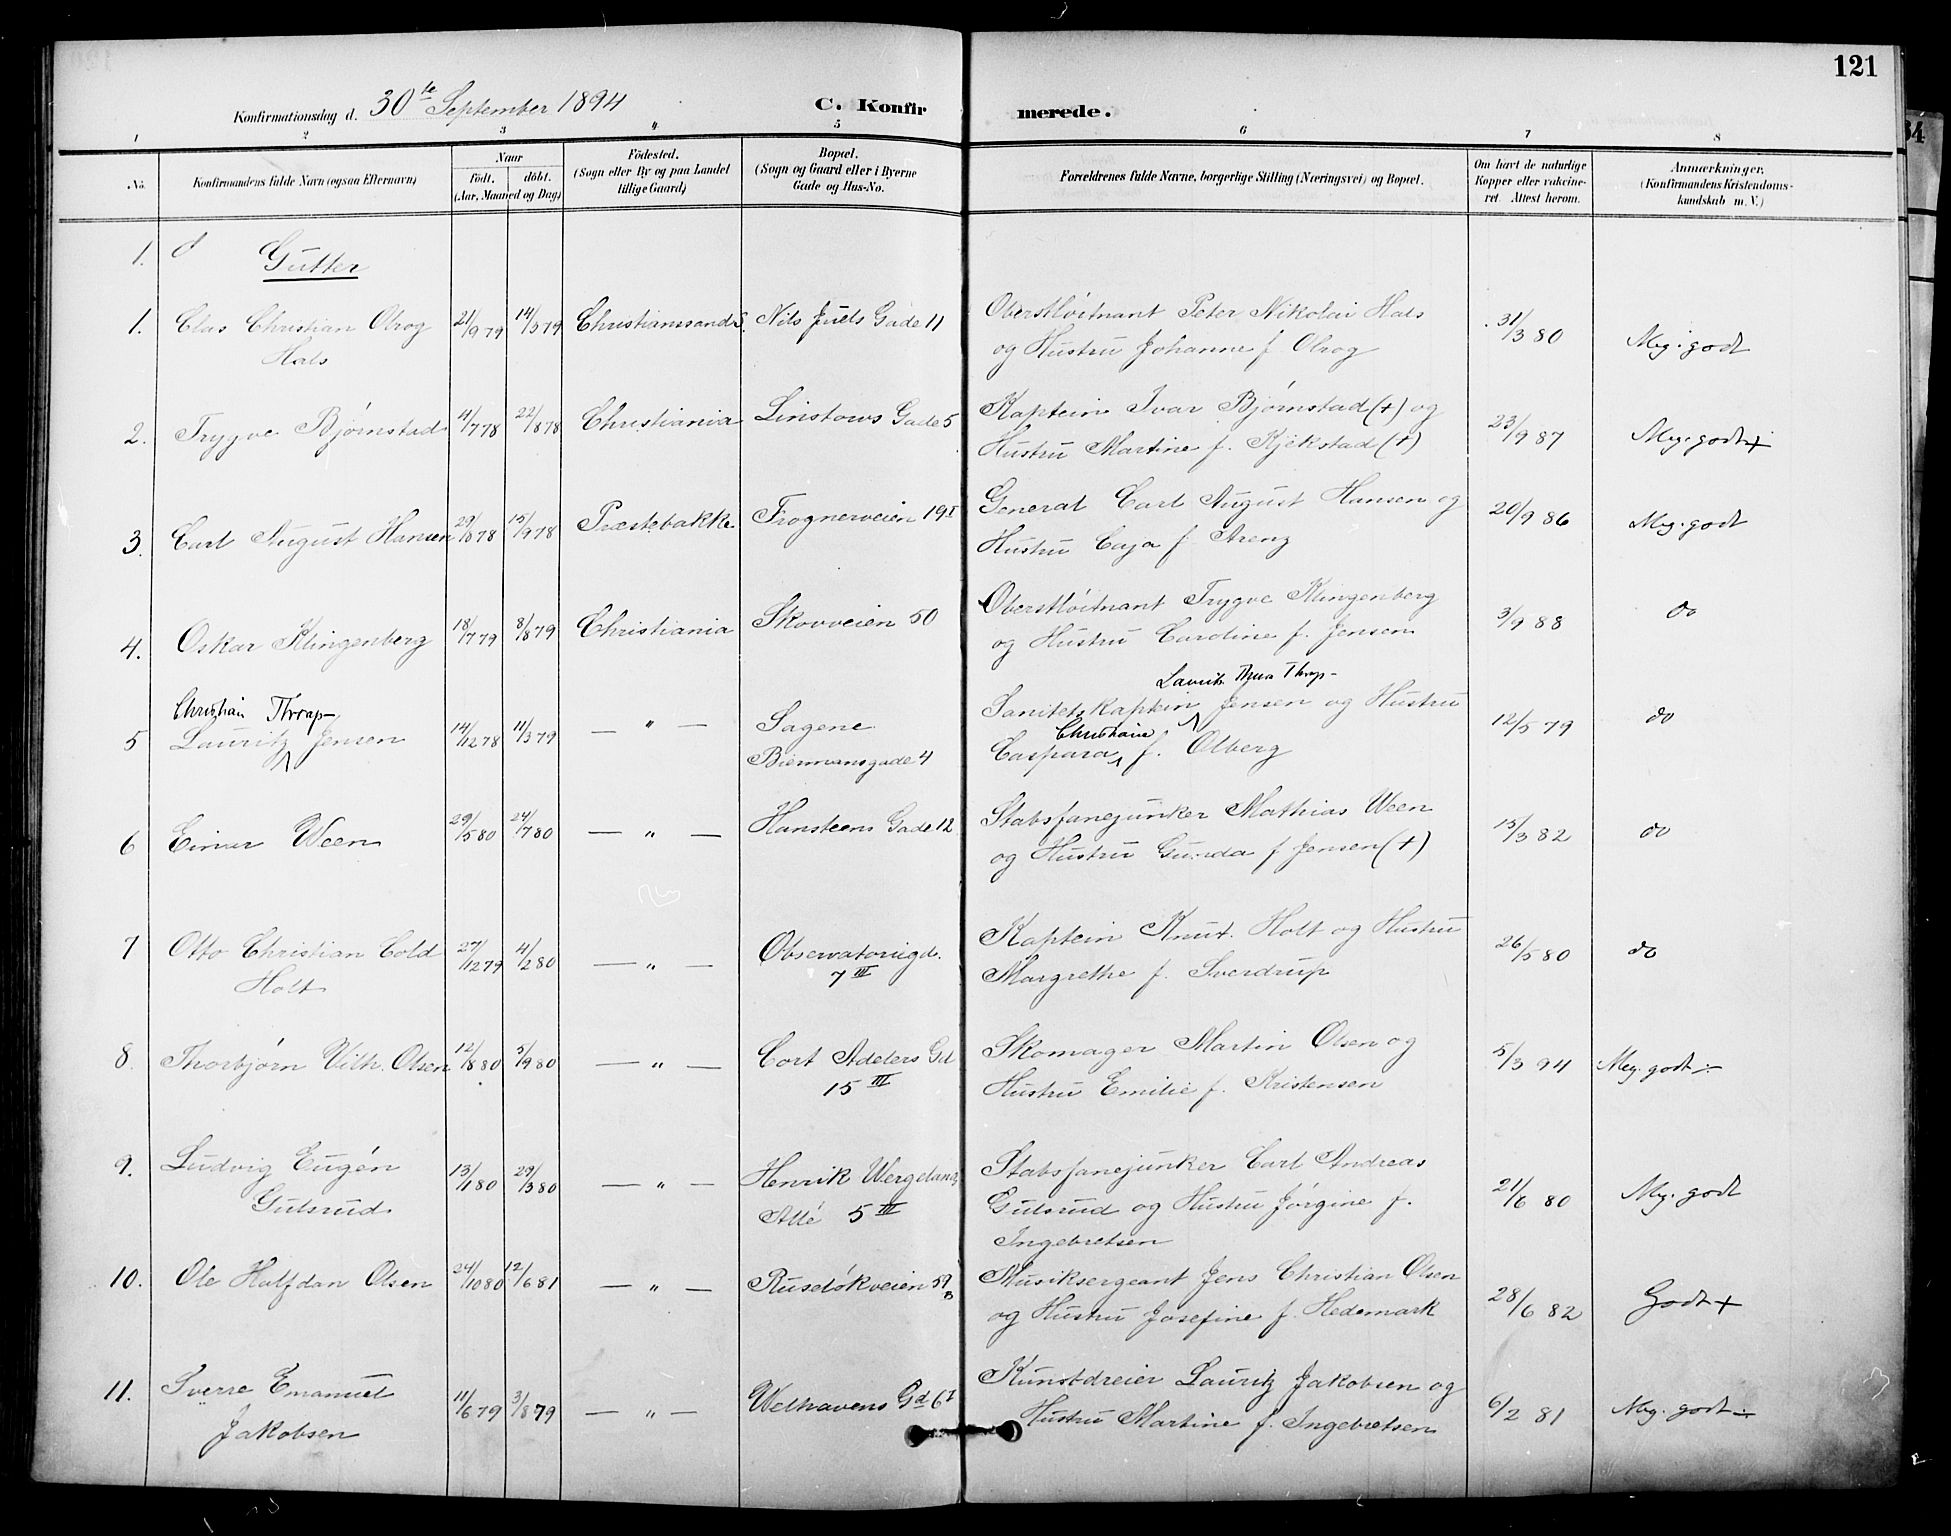 121
Konfirmationsdag d. 30te September 1894
C. Konfirmerede.
1 2 3 4 5 6 7 8
No.
Konfirmandens fulde Navn (ogsaa Efternavn)
Naar
født. døbt.
(Aar, Maaned og Dag)
Födested.
(Sogn eller By og paa Landet
tillige Gaard)
Bopæl.
(Sogn og Gaard eller i Byerne
Gade og Hus-No.
Forældrenes fulde Navne, borgerlige Stilling (Næringsvei) og Bopæl.
Om havt de naturlige
Kopper eller vakcine-
ret. Attest herom.
Anmærkninger.
(Konfirmandens Kristendoms-
kundskab m. V.)
1.
Gutter
1. Clas Christian Olrog 21/9 79 14/3 79 Christianssand S. Nils Juels Gade 11 Oberstløitnant Peter Nikolai Hals 31/3 80 Meg. godt
Hals og Hustru Johanne f. Olrog
2. Trygve Bjørnstad 4/7 78 22/8 78 Christiania Linstows Gade 5 Kaptein Ivar Bjørnstad (+) og 23/9 87 Meg. godt +
Hustru Martine f. Kjekstad (+)
3. Carl August Hansen 29/8 78 15/9 78 Præstebakke Frognerveien 19 I General Carl August Hansen og 20/9 86 Meg. godt
Hustru Caja f. Arenz
4. Oskar Klingenberg 18/7 79 8/8 79 Christiania Skovveien 50 Oberstløitnant Trygve Klingenberg 3/9 88 do
og Hustru Caroline f. Jensen
Christian Thrap- Thrap-
5 Lauritz Jensen 14/12 78 11/3 79 — " — Sagene Sanitetskaptein Jensen og Hustru 12/5 79 do
Christiane
Biermansgade 4 Caspara f. Olberg
6 Einar Ween 29/5 80 24/7 80 — " — Hansteens Gade 12 Stabsfanejunker Mathias Ween 15/3 82 do
og Hustru Gunda f. Jensen (+)
7 Otto Christian Cold 27/12 79 4/2 80 — " — Observatoriegd. Kaptein Knut Holt og Hustru 26/5 80 do
Holt 7 III Margrethe f. Sverdrup
8. Thorbjørn Vilh. Olsen 12/8 80 5/9 80 — " — Cort Adelers Gd Skomager Martin Olsen og 5/3 94 Meg. godt ÷
15 III Hustru Emilie f. Kristensen
9. Ludvig Eugén 13/1 80 29/3 80 — " — Henrik Wergelands Stabsfanejunker Carl Andreas 21/6 80 Meg. godt
Gulsrud Allé 5 III Gulsrud og Hustru Jørgine f.
Ingebretsen
10. Ole Halfdan Olsen 24/10 80 12/6 81 — " — Ruseløkveien 59 B Musiksergeant Jens Christian Olsen 28/6 82 Godt +
og Hustru Josefine f. Hedemark
11. Sverre Emanuel 11/6 79 3/8 79 — " — Welhavens Gd 6 I Kunstdreier Lauritz Jakobsen og 6/2 81 Meg. godt ÷
Jakobsen Hustru Martine f. Ingebretsen